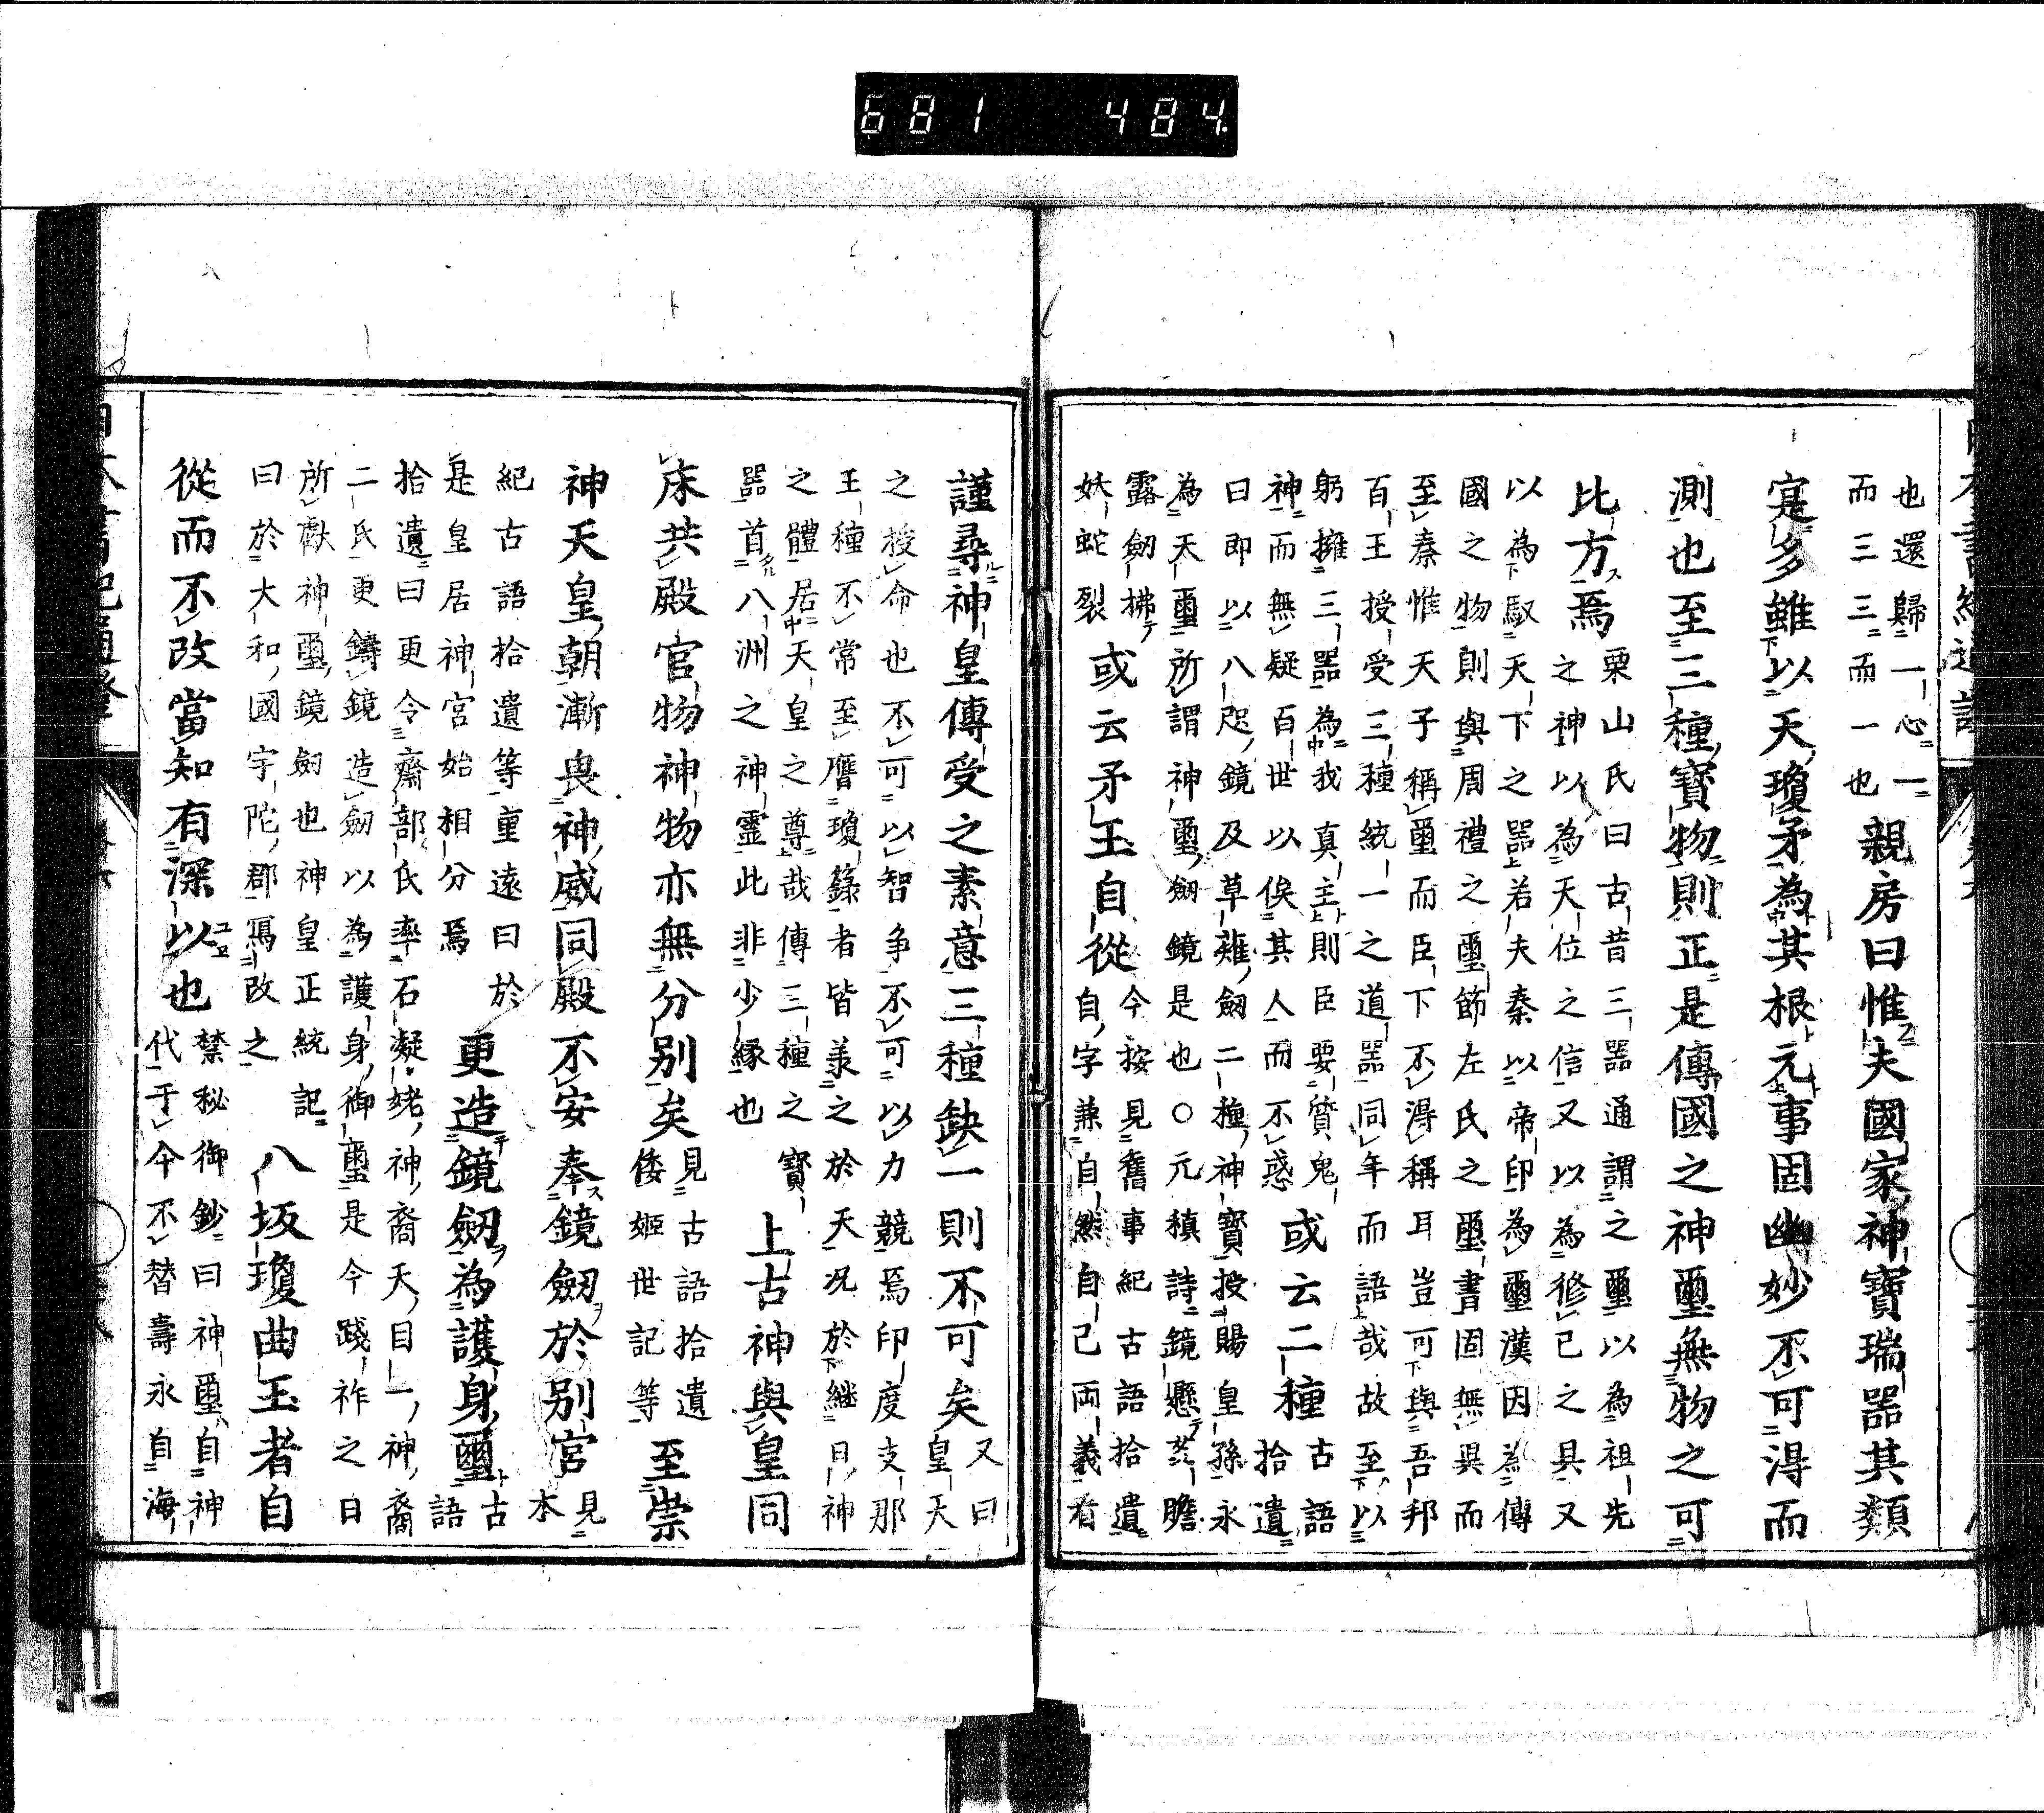 也還歸一心一
而三三而一也
親房曰惟夫國家神寶瑞器其類
寔多雖以天瓊矛為其根元事固幽妙不可得而
測也至三種寶物則正是傳國之神璽無物之可
比方焉
栗山氏曰古昔三器通謂之璽以為祖先
之神以為天位之信又以為修己之具又
以為馭天下之器若夫秦以帝印為璽漢因為傳
國之物則與周禮之璽節左氏之璽書固無異而
至秦惟天子稱璽而臣下不得稱耳豈可與吾邦
百王授受三種統一之道器同年而語哉故至以
躬擁三器為我真主則臣要質鬼
神而無疑百世以俟其人而不惑
或云二種
古語
拾遺
曰即以八咫鏡及草薙劔二種神寶授賜皇孫永
為天璽所謂神璽劔鏡是也○元稹詩鏡懸膽
露劔拂
妖蛇裂
或云矛玉自從
今按見舊事紀古語拾遺
自字兼自然自己兩義看
謹尋神皇傳受之素意三種缺一則不可矣
又曰
皇天
之授命也不可以智争不可以力競焉印度支那
王種不常至膺瓊籙者皆羕之於天況於継日神
之體居天皇之尊哉傳三種之寶
器首八洲之神靈此非少縁也
上古神與皇同
床共殿官物神物亦無分別矣
見古語拾遺
倭姬世記等
至崇
神天皇朝漸畏神威同殿不安奉鏡劔於別宮
見
本
紀古語拾遺等重遠曰於
是皇居神宮始相分焉
更造鏡劔為護身璽
古
語
拾遺曰更令齋部氏率石凝姥神裔天目一神裔
二氏更鑄鏡造劔以為護身御璽是今踐祚之日
所獻神璽鏡劔也神皇正統記
曰於大和國宇陀郡冩改之
八坂瓊曲玉者自
從而不改當知有深以也
禁秘御鈔曰神璽自神
代于今不替壽永自海
681 484